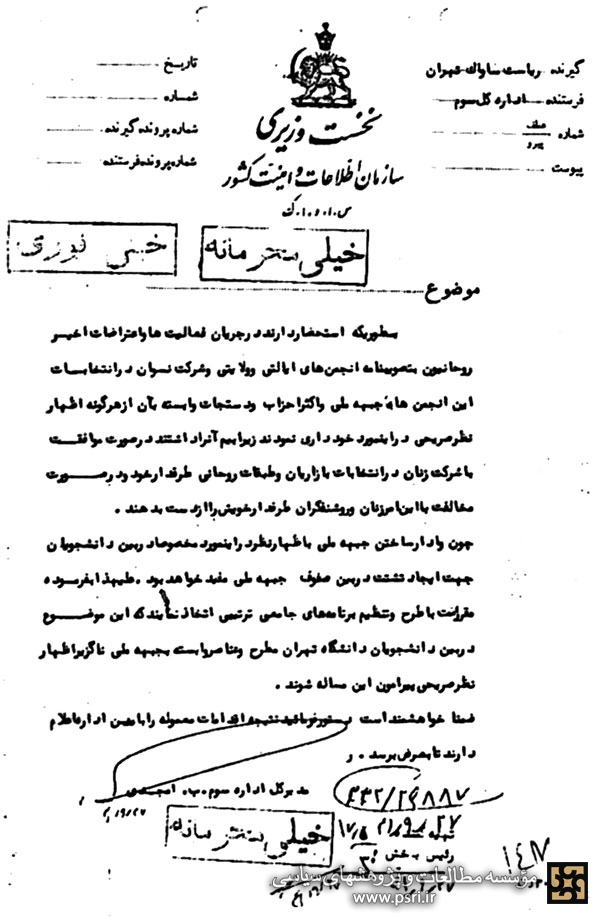 گیرنده ریاست ساواک تهران
فرستنده اداره کل سوم
شماره عطف پیرو
پیوست
نخست وزیری
سازمان اطلاعات و امنیت کشور
س.ا.و.ا.ک
تاریخ
شماره
شماره پرونده گیرنده
شماره پرونده فرستنده
خیلی محرمانه
خیلی فوری
موضوع
بطوریکه استحضار دارند در جریان فعالیت ها و اعتراضات اخیر
روحانیون بتصویبنامه انجمن های ایالتی وولایتی وشرکت نسوان در انتخابات
این انجمن ها جبهه ملی واکثر احزاب ودستجات وابسته بآن از هرگونه اظهار
نظر صریحی در اینمورد خودداری نمودند زیرا بیم آنرا داشتند در صورت موافقت
با شرکت زنان در انتخابات بازاریان وطبقات روحانی طرفدار خود ودر صورت
مخالفت با این امر زنان وروشنفکران طرفدار خویش را از دست بدهند .
چون وادار ساختن جبهه ملی باظهار نظر در اینمورد مخصوصا در بین دانشجویان
جهت ایجاد تشتت در بین صفوف جبهه ملی مفید خواهد بود . علیهذا بفرموده
مقرر است با طرح وتنظیم برنامه های جامعی ترتیبی اتخاذ نمایند که این موضوع
در بین دانشجویان دانشگاه تهران مطرح وعناصر وابسته بجبهه ملی ناگزیر اظهار
نظر صریحی پیرامون این مساله شوند .
ضمنا خواهشمند است دستور فرمائید نتیجه اقدامات معموله را باین اداره اعلام
دارند تا بعرض برسد . ر
مدیرکل اداره سوم . ب . امجدی
۳۳۲/۲۹۸۸۷
خیلی محرمانه
رئیس بخش
۱۴۷
مؤسسه مطالعات و پژوهشهای سیاسی
www.psri.ir